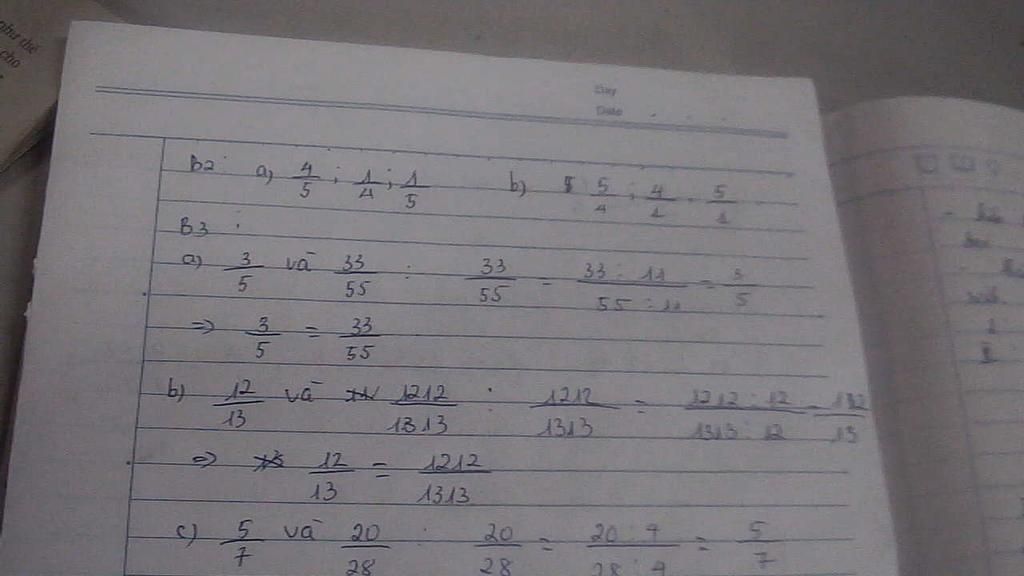 như thế
cho
Day
Date
B2: a) 4/5 ; 1/4 ; 1/5 b) 5/4 ; 4/1 . 5/1
B3 :
a) 3/5 và 33/55 : 33/55 = 33 : 11/55 : 11 = 3/5
=> 3/5 = 33/55
b) 12/13 và 1212/1313 : 1212/1313 = 1212 : 12/1313 : 12 = 112/13
=> 12/13 = 1212/1313
c) 5/7 và 20/28 : 20/28 = 20 : 4/28 : 4 = 5/7